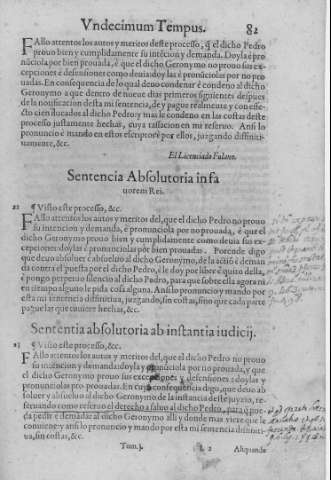 Vndecimum Tempus. 82
FAllo attentos los autos y meritos deste processo, q̃ el dicho Pedro
prouo bien y cumplidamente su intecion y demanda. Doyla è pro-
nũciola por bien prouada, è que el dicho Geronymo no prouo sus ex-
cepciones è defensiones como deuia: doylas è pronũciolas por no pro-
uadas. En consequencia de lo qual deuo condenar è condeno al dicho
Geronymo a que dentro de nueue dias primeros siguientes despues
de la notificacion desta mi sentencia, de y pague realmente y con efe-
cto cien ducados al dicho Pedro y mas le condeno en las costas deste
processo justamente hechas, cuya tassacion en mi reseruo. Ansi lo
pronuncio è mando en estos escriptos è por ellos, juzgando diffiniti-
uamente, &c.
El Licenciado Fulano.
Sentencia Absolutoria in fa
uorem Rei.
22 ¶ Visto este processo, &c.
FAllo attentos los autos y meritos del, que el dicho Pedro no prouo
su intencion y demanda, è pronunciola por no prouada, è que el
dicho Geronymo prouo bien y cumplidamente como deuia sus ex-
cepciones doylas è pronunciolas por bien prouadas. Porende digo
que deuo absoluer è absueluo al dicho Geronymo, de la actiõ è deman
da contra el puesta por el dicho Pedro, è le doy por libre è quito della,
è pongo perpetuo silencio al dicho Pedro, para que sobre ella agora ni
en tiempo alguno le pida cosa alguna. Ansi lo pronuncio y mando por
esta mi sentencia diffinitiua, juzgando, sin costas, sino que cada parte
pague las que tuuiere hechas, &c.
Sententia absolutoria ab instantia iudicij.
23 ¶ Visto este processo, &c.
FAllo attentos los autos y meritos del, que el dicho Pedro no prouo
su intencion y demanda: doyla y pronunciola por no prouada, y que
el dicho Geronymo prouo sus excepciones y defensiones: doylas y
pronunciolas pro prouadas. En cuya consequencia digo, que deuo ab
soluer y absueluo al dicho Geronymo de la instancia deste juyzio, re-
seruando como reseruo el derecho a saluo al dicho Pedro, para q̃ pue
da pedir è demãdar al dicho Geronymo alli y donde mas viere que le
conuiene y ansi lo pronuncio y mando por esta mi sentencia diffiniti-
ua, sin costas, &c.
Tom.j. L 2 Aliquando